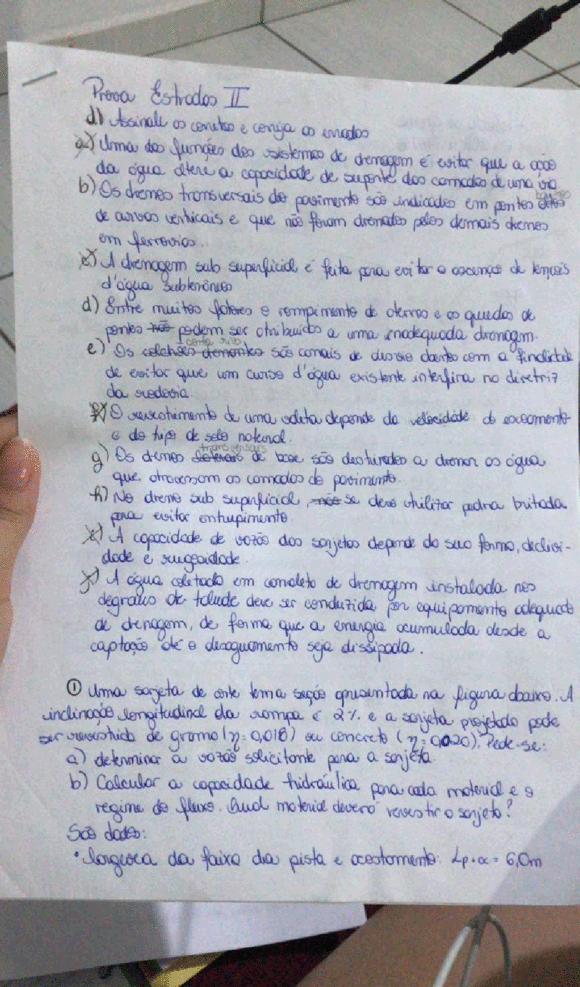 Prova Estradas II
d) Assinale os corretos e corrija os errados
a) Uma das funções dos sistemas de drenagem é evitar que a ação
da água altere a capacidade de suporte das camadas de uma via
b) Os drenos transversais do pavimento são indicados em pontos baixos
de curvas verticais e que não foram drenados pelos demais drenos
em ferrovias.
c) A drenagem sub superficial é feita para evitar a ascenção de lençois
d'água subterrâneo
d) Entre muitos fatores o rompimento de aterros e as quedas de
pontes não podem ser atribuídos a uma inadequada drenagem.
corta rios
e) Os são canais de desvio dantes com a finalidade
de evitar que um curso d'água existente interfira na diretriz
da rodovia.
f) O revestimento de uma valeta depende da velocidade do escoamento
e do tipo de solo natural.
transversais
g) Os drenos laterais de base são destinados a drenar as água
que atravessam as camadas do pavimento.
h) No dreno sub superficial, não se deve utilizar pedra britada
para evitar entupimento.
i) A capacidade de vazão das sarjetas depende da sua forma, declivi-
dade e rugosidade.
j) A água coletada em canaleta de drenagem instalada nos
degraus de talude deve ser conduzida por equipamento adequado
de drenagem, de forma que a energia acumulada desde a
captação até o desaguamento seja dissipada.
① Uma sarjeta de corte tem a seção apresentada na figura abaixo. A
inclinação longitudinal da rampa é 2% e a sarjeta projetada pode
ser revestida de grama (η=0,018) ou concreto (η=0,020). Pede-se:
a) determinar a vazão solicitante para a sarjeta.
b) Calcular a capacidade hidráulica para cada material e o
regime do fluxo. Qual material deverá revestir a sarjeta?
São dados:
• largura da faixa da pista e acostamento: Lp+a = 6,0m